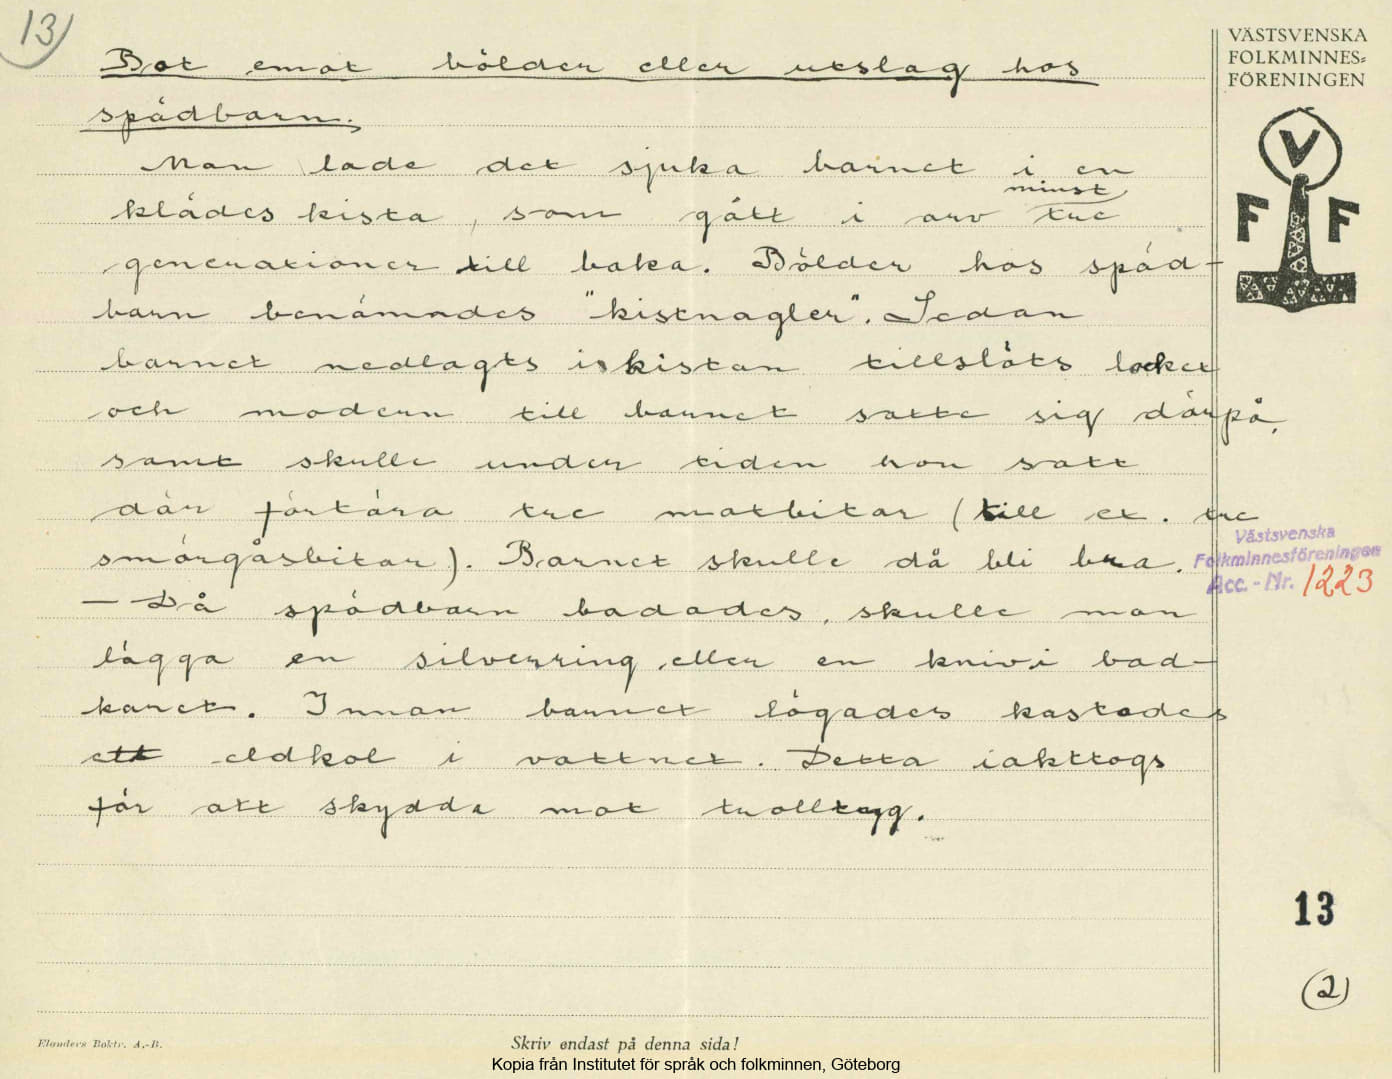 13
VÄSTSVENSKA
FOLKMINNES-
FÖRENINGEN
V
F F
Bot emot bölder eller utslag hos
spädbarn.
Man lade det sjuka barnet i en
klädeskista, som gått i arv minst tre
generationer tillbaka. Bölder hos späd-
barn benämndes "kistnagler". Sedan
barnet nedlagts i kistan tillslöts locket
och modern till barnet satte sig därpå,
samt skulle under tiden hon satt
där förtära tre matbitar (till ex. tre
smörgåsbitar). Barnet skulle då bli bra.
— Då spädbarn badades, skulle man
lägga en silverring eller en kniv i bad-
karet. Innan barnet lögades kastades
ett eldkol i vattnet. Detta iakttogs
för att skydda mot trolltyg.
Västsvenska
Folkminnesföreningen
Acc.-Nr. 1223
13
(2)
Elanders Boktr. A.-B.
Skriv endast på denna sida!
Kopia från Institutet för språk och folkminnen, Göteborg